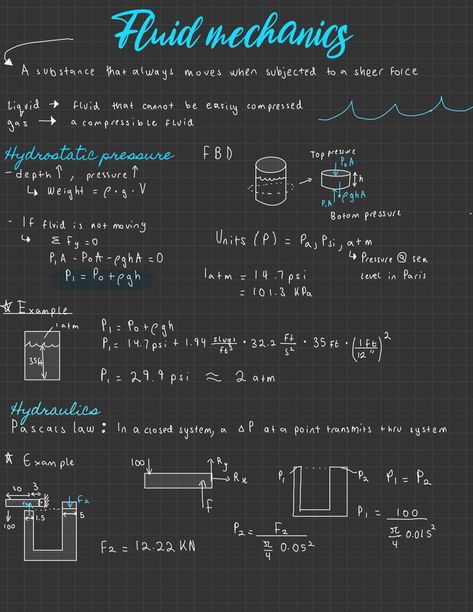 Fluid mechanics
A substance that always moves when subjected to a sheer force
Liquid → fluid that cannot be easily compressed
gas → a compressible fluid
Hydrostatic pressure
- depth ↑, pressure ↑
↳ Weight = ρ · g · V
- If fluid is not moving
↳ Σ Fy = 0
P₁A - P₀A - ρghA = 0
P₁ = P₀ + ρgh
FBD
Top pressure
P₀A
h
P₁A ρghA
Botom pressure
Units (P) = Pa, Psi, atm
↳ Pressure @ sea
level in Paris
1atm = 14.7 psi
= 101.3 KPa
☆ Example
1atm
35ft
P₁ = P₀ + ρgh
P₁ = 14.7psi + 1.94 slugs/ft³ · 32.2 ft/s² · 35 ft · (1ft/12")²
P₁ = 29.9 psi ≈ 2 atm
Hydraulics
Pascals law: In a closed system, a ΔP at a point transmits thru system
☆ Example
30 3
F₂
100 1.5 5
100 Ry
Rx
F
P₁ P₂
P₁ = P₂
P₁ = 100 / (π/4 0.015²)
P₂ = F₂ / (π/4 0.05²)
F₂ = 12.22 KN